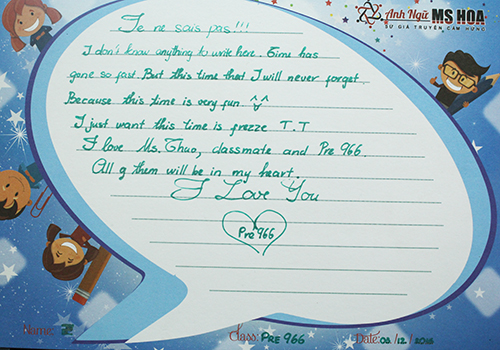 Anh Ngữ MS HOA
SỨ GIẢ TRUYỀN CẢM HỨNG
Je ne sais pas!!!
I don't know anything to write here. Time has
gone so fast. But this time that I will never forget.
Because this time is very fun ^^
I just want this time is frezze T.T
I love Ms. Thuo, classmate and Pre 966.
All of them will be in my heart.
I Love You
Pre 966
Name:
Class: PRE 966
Date: 03/12/2016